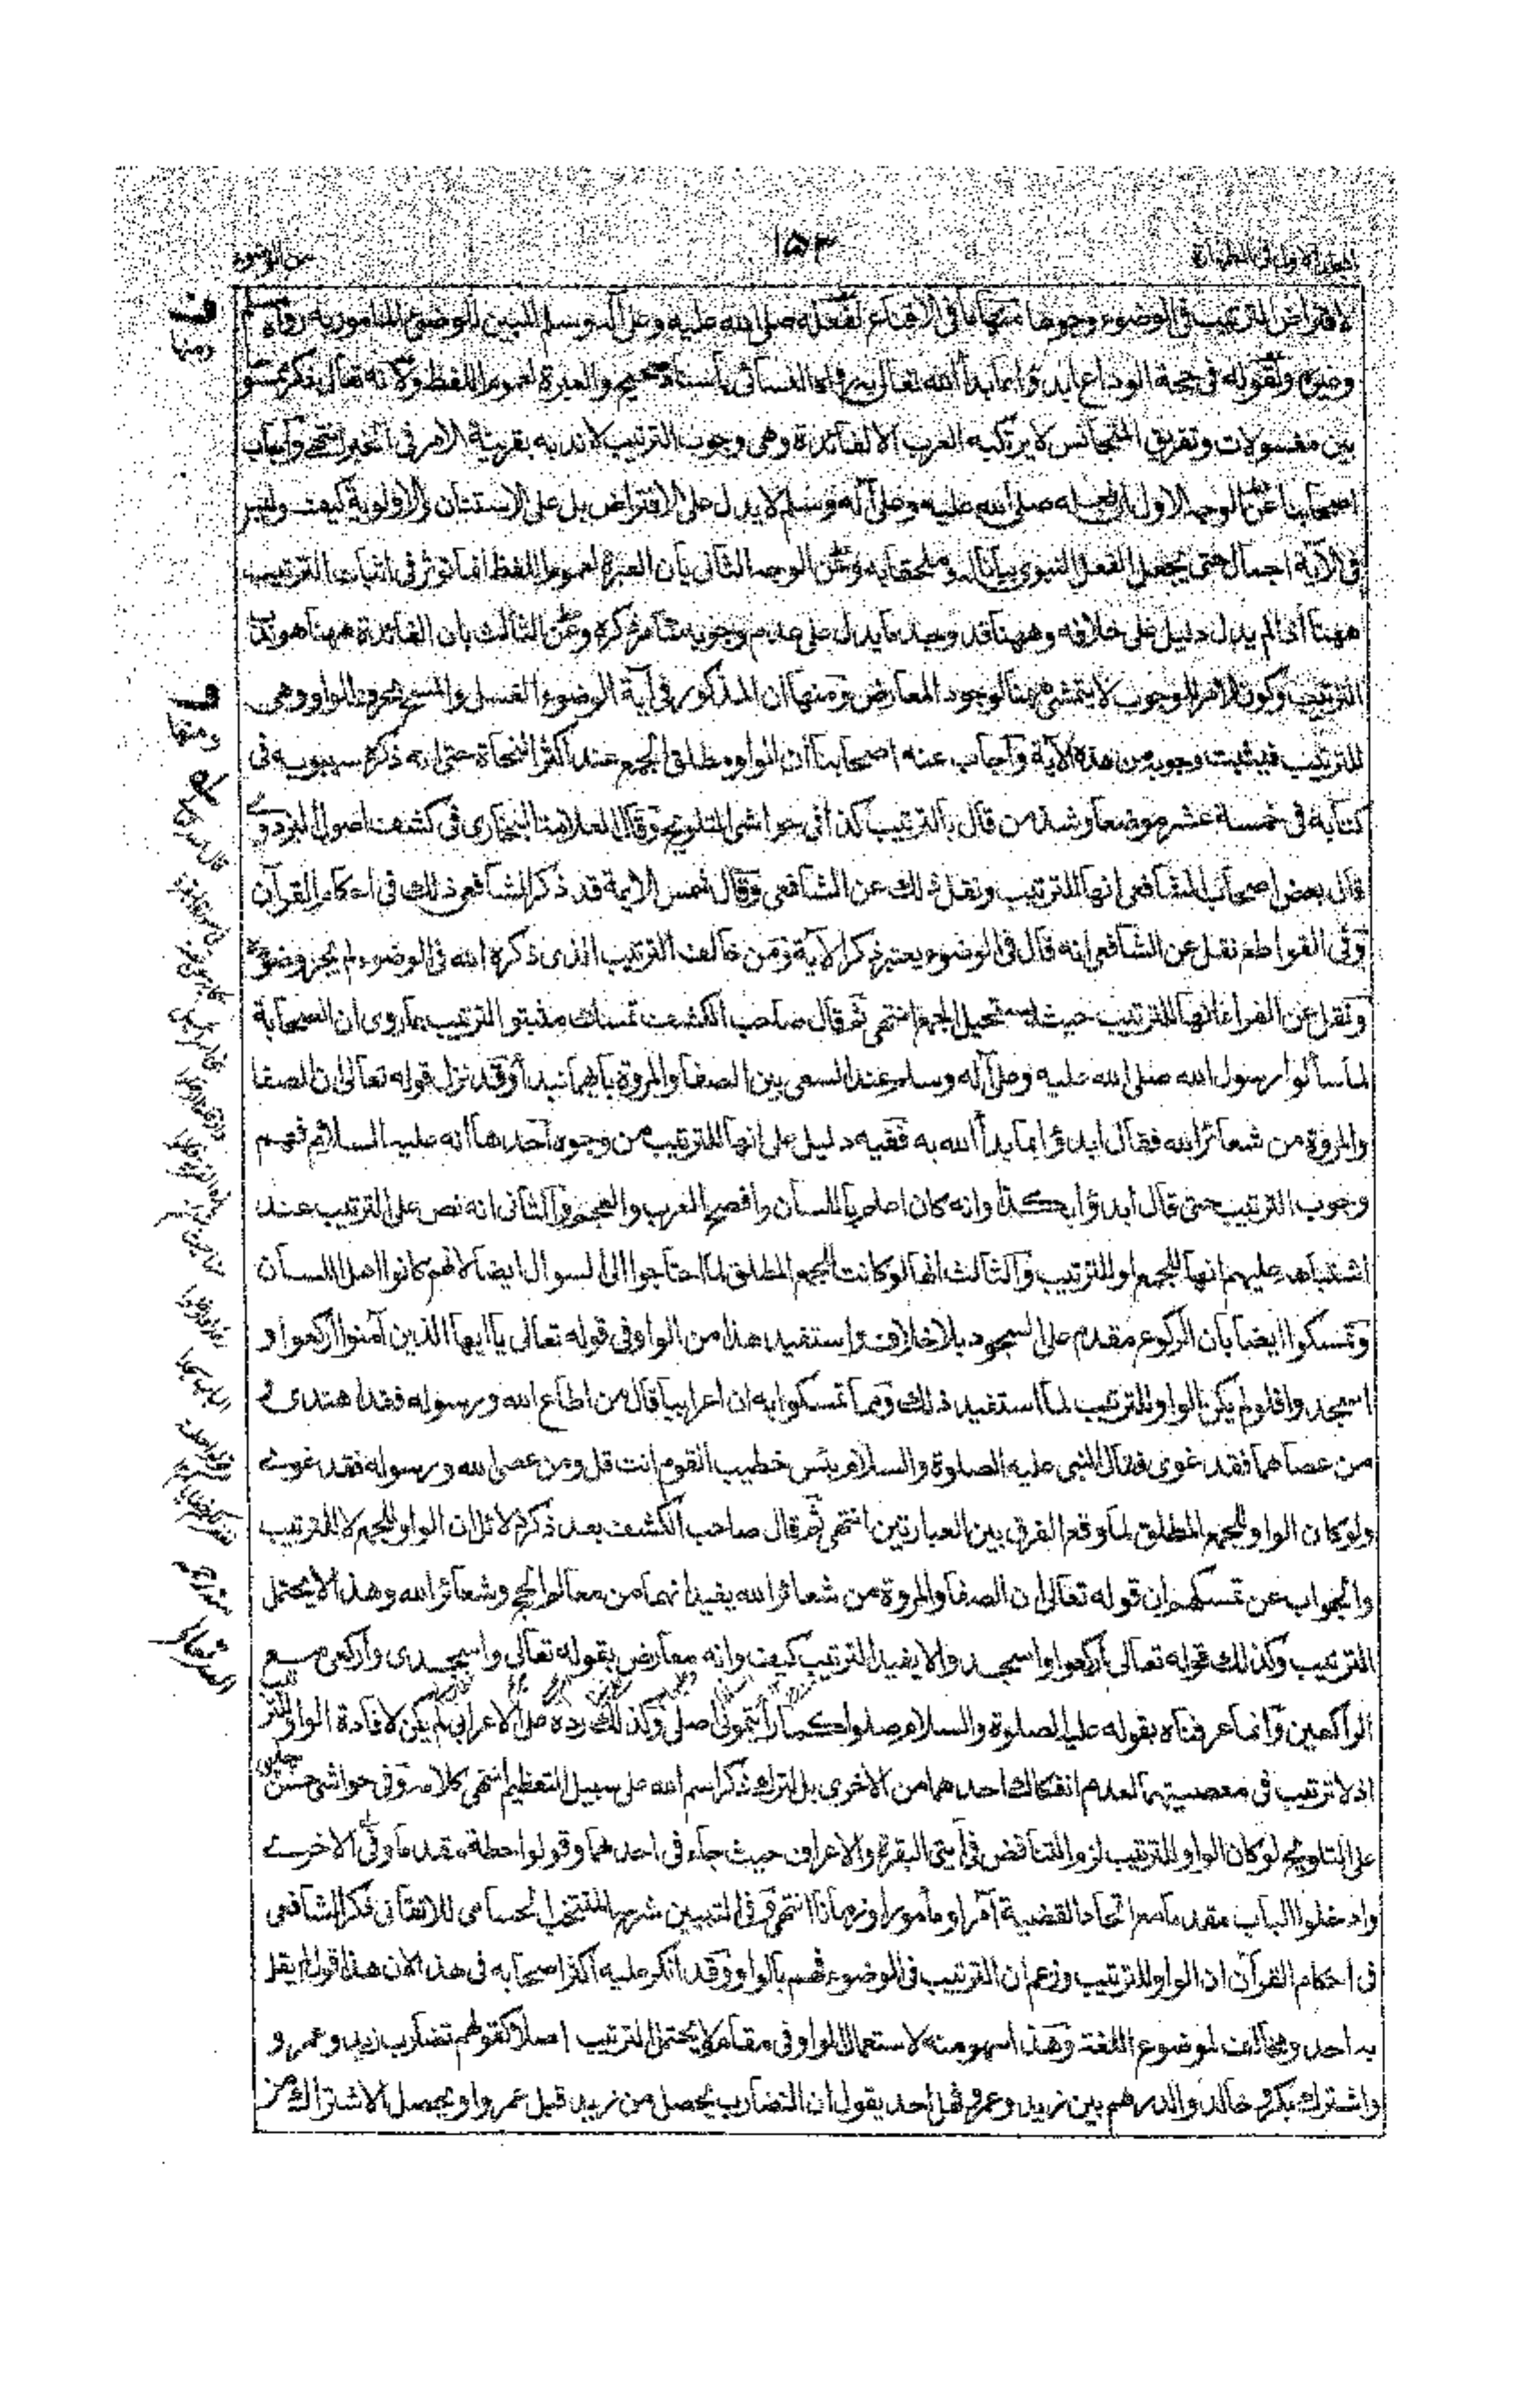 ١٥٣
لافتراض الترتيب فى الوضوء وجوها منها ما فى الاقناع لفعله صلى الله عليه وعلى آله وسلم المبين للوضوء المامور به رواه مسلم
وغيره ولقوله فى حجة الوداع ابدؤا بما بدأ الله تعالى به رواه النسائى باسناد صحيح والعبرة لعموم اللفظ ولانه تعالى ذكر ممسوحا
بين مغسولات وتفريق المتجانس لا يرتكبه العرب الا لفائدة وهى وجوب الترتيب لا ندبه بقرينة الامر فى الخبر انتهى وأجاب
اصحابنا عن الوجه الاول بان فعله صلى الله عليه وعلى آله وسلم لا يدل على الافتراض بل على الاستنان والاولوية كيف وليس
فى الآية اجمال حتى يجعل الفعل النبوى بيانا له وملحقا به وعن الوجه الثانى بان العبرة لعموم اللفظ انما تؤثر فى اثبات الترتيب
ههنا اذا لم يدل دليل على خلافه وههنا قد وجد ما يدل على عدم وجوبه مما مر ذكره وعن الثالث بان الفائدة ههنا هو ندب
الترتيب وكون الامر للوجوب لا يتمشى ههنا لوجود المعارض ومنها ان المذكور فى آية الوضوء الغسل والمسح بحرف الواو وهى
للترتيب فيثبت وجوبه من هذه الآية وأجاب عنه اصحابنا ان الواو مطلق الجمع عند اكثر النحاة حتى انه ذكره سيبويه فى
كتابه فى خمسة عشر موضعا وشذ من قال بالترتيب كذا فى حواشى التلويح وقال العلامة البخارى فى كشف اصول البزدوى
قال بعض اصحاب الشافعى انها للترتيب ونقل ذلك عن الشافعى وقال شمس الايمة قد ذكر الشافعى ذلك فى احكام القرآن
وفى القواطع نقل عن الشافعى انه قال فى الوضوء يعتبر ذكر الآية ومن خالف الترتيب الذى ذكره الله فى الوضوء لم يجز وضوءه
ونقل عن الفراء انها للترتيب حيث يستحيل الجمع انتهى ثم قال صاحب الكشف تمسك مثبتو الترتيب بما روى ان الصحابة
لما سألوا رسول الله صلى الله عليه وعلى آله وسلم عند السعى بين الصفا والمروة بايهما نبدأ وقد نزل قوله تعالى ان الصفا
والمروة من شعائر الله فقال ابدؤا بما بدأ الله به ففيه دليل على انها للترتيب من وجوه احدها انه عليه السلام فهم
وجوب الترتيب حتى قال ابدؤا بكذا وانه كان اعلم باللسان وافصح العرب والعجم والثانى انه نص على الترتيب عند
اشتباهه عليهم انها للجمع او للترتيب والثالث انها لو كانت للجمع المطلق لما احتاجوا الى السوال ايضا لانهم كانوا اهل اللسان
وتمسكوا ايضا بان الركوع مقدم على السجود بلا خلاف واستفيد هذا من الواو فى قوله تعالى يا ايها الذين آمنوا اركعوا و
اسجدوا فلو لم يكن الواو للترتيب لما استفيد ذلك ومما تمسكوا به ان اعرابيا قال من اطاع الله ورسوله فقد اهتدى و
من عصاهما فقد غوى فقال النبى عليه الصلوة والسلام بئس خطيب القوم انت قل ومن عصى الله ورسوله فقد غوى
ولو كان الواو للجمع المطلق لما وقع الفرق بين العبارتين انتهى ثم قال صاحب الكشف بعد ذكر دلائل ان الواو للجمع لا للترتيب
والجواب عن تمسكهم ان قوله تعالى ان الصفا والمروة من شعائر الله يفيد انهما من معالم الحج وشعائر الله وهذا لا يحتمل
الترتيب وكذلك قوله تعالى اركعوا واسجدوا لا يفيد الترتيب كيف وانه معارض بقوله تعالى واسجدى واركعى مع
الراكعين وانما عرفناه بقوله عليه الصلوة والسلام صلوا كما رأيتمونى اصلى وكذلك رده على الاعرابى لم يكن لافادة الواو للترتيب
اذ لا ترتيب فى معصيتهما لعدم انفكاك احدهما من الاخرى بل لترك ذكر اسم الله على سبيل التعظيم انتهى كلامه وفى حواشى حسن چلپى
على التلويح لو كان الواو للترتيب لزم التناقض فى آيتى البقرة والاعراف حيث جاء فى احدهما وقولوا حطة مقدما وفى الاخرى
وادخلوا الباب مقدما مع اتحاد القضية آمرا ومأمورا وزمانا انتهى وفى التبيين شرح المنتخب الحسامى للاتقانى ذكر الشافعى
فى احكام القرآن ان الواو للترتيب وزعم ان الترتيب فى الوضوء فهم بالواو وقد انكر عليه اكثر اصحابه فى هذا لان هذا قول لم يقل
به احد ومخالف لموضوع اللغة وهذا سهو منه لاستعمال الواو فى مقام لا يحتمل الترتيب اصلا كقولهم تضارب زيد وعمرو
واشترك بكر وخالد والدرهم بين زيد وعمرو فهل احد يقول ان التضارب يحصل من زيد قبل عمرو او يحصل الاشتراك من
ف
ومنها
ف
ومنها